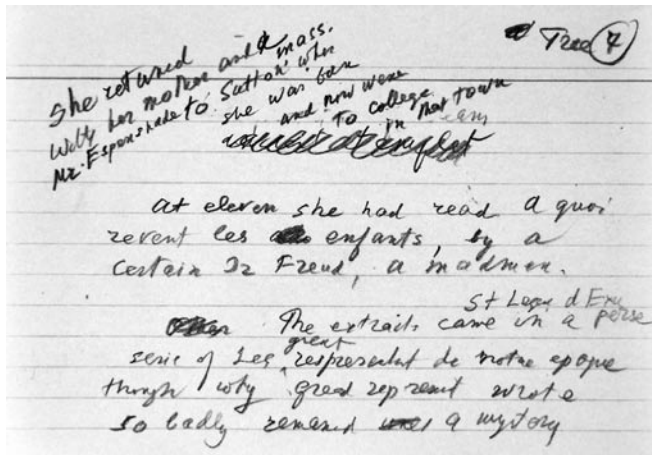 Tree 7
she returned
with her mother and mass.
Mr. Espenshade to Sutton when
she was born
and now went
to college
in that town
at eleven she had read A quoi
revent les enfants, by a
certain Dr Freud, a madman.
St Leger d'Exu
The extraits came in a perse
serie of Les great
respresentant de notre epoque
though why great represent wrote
so badly remained a mystory